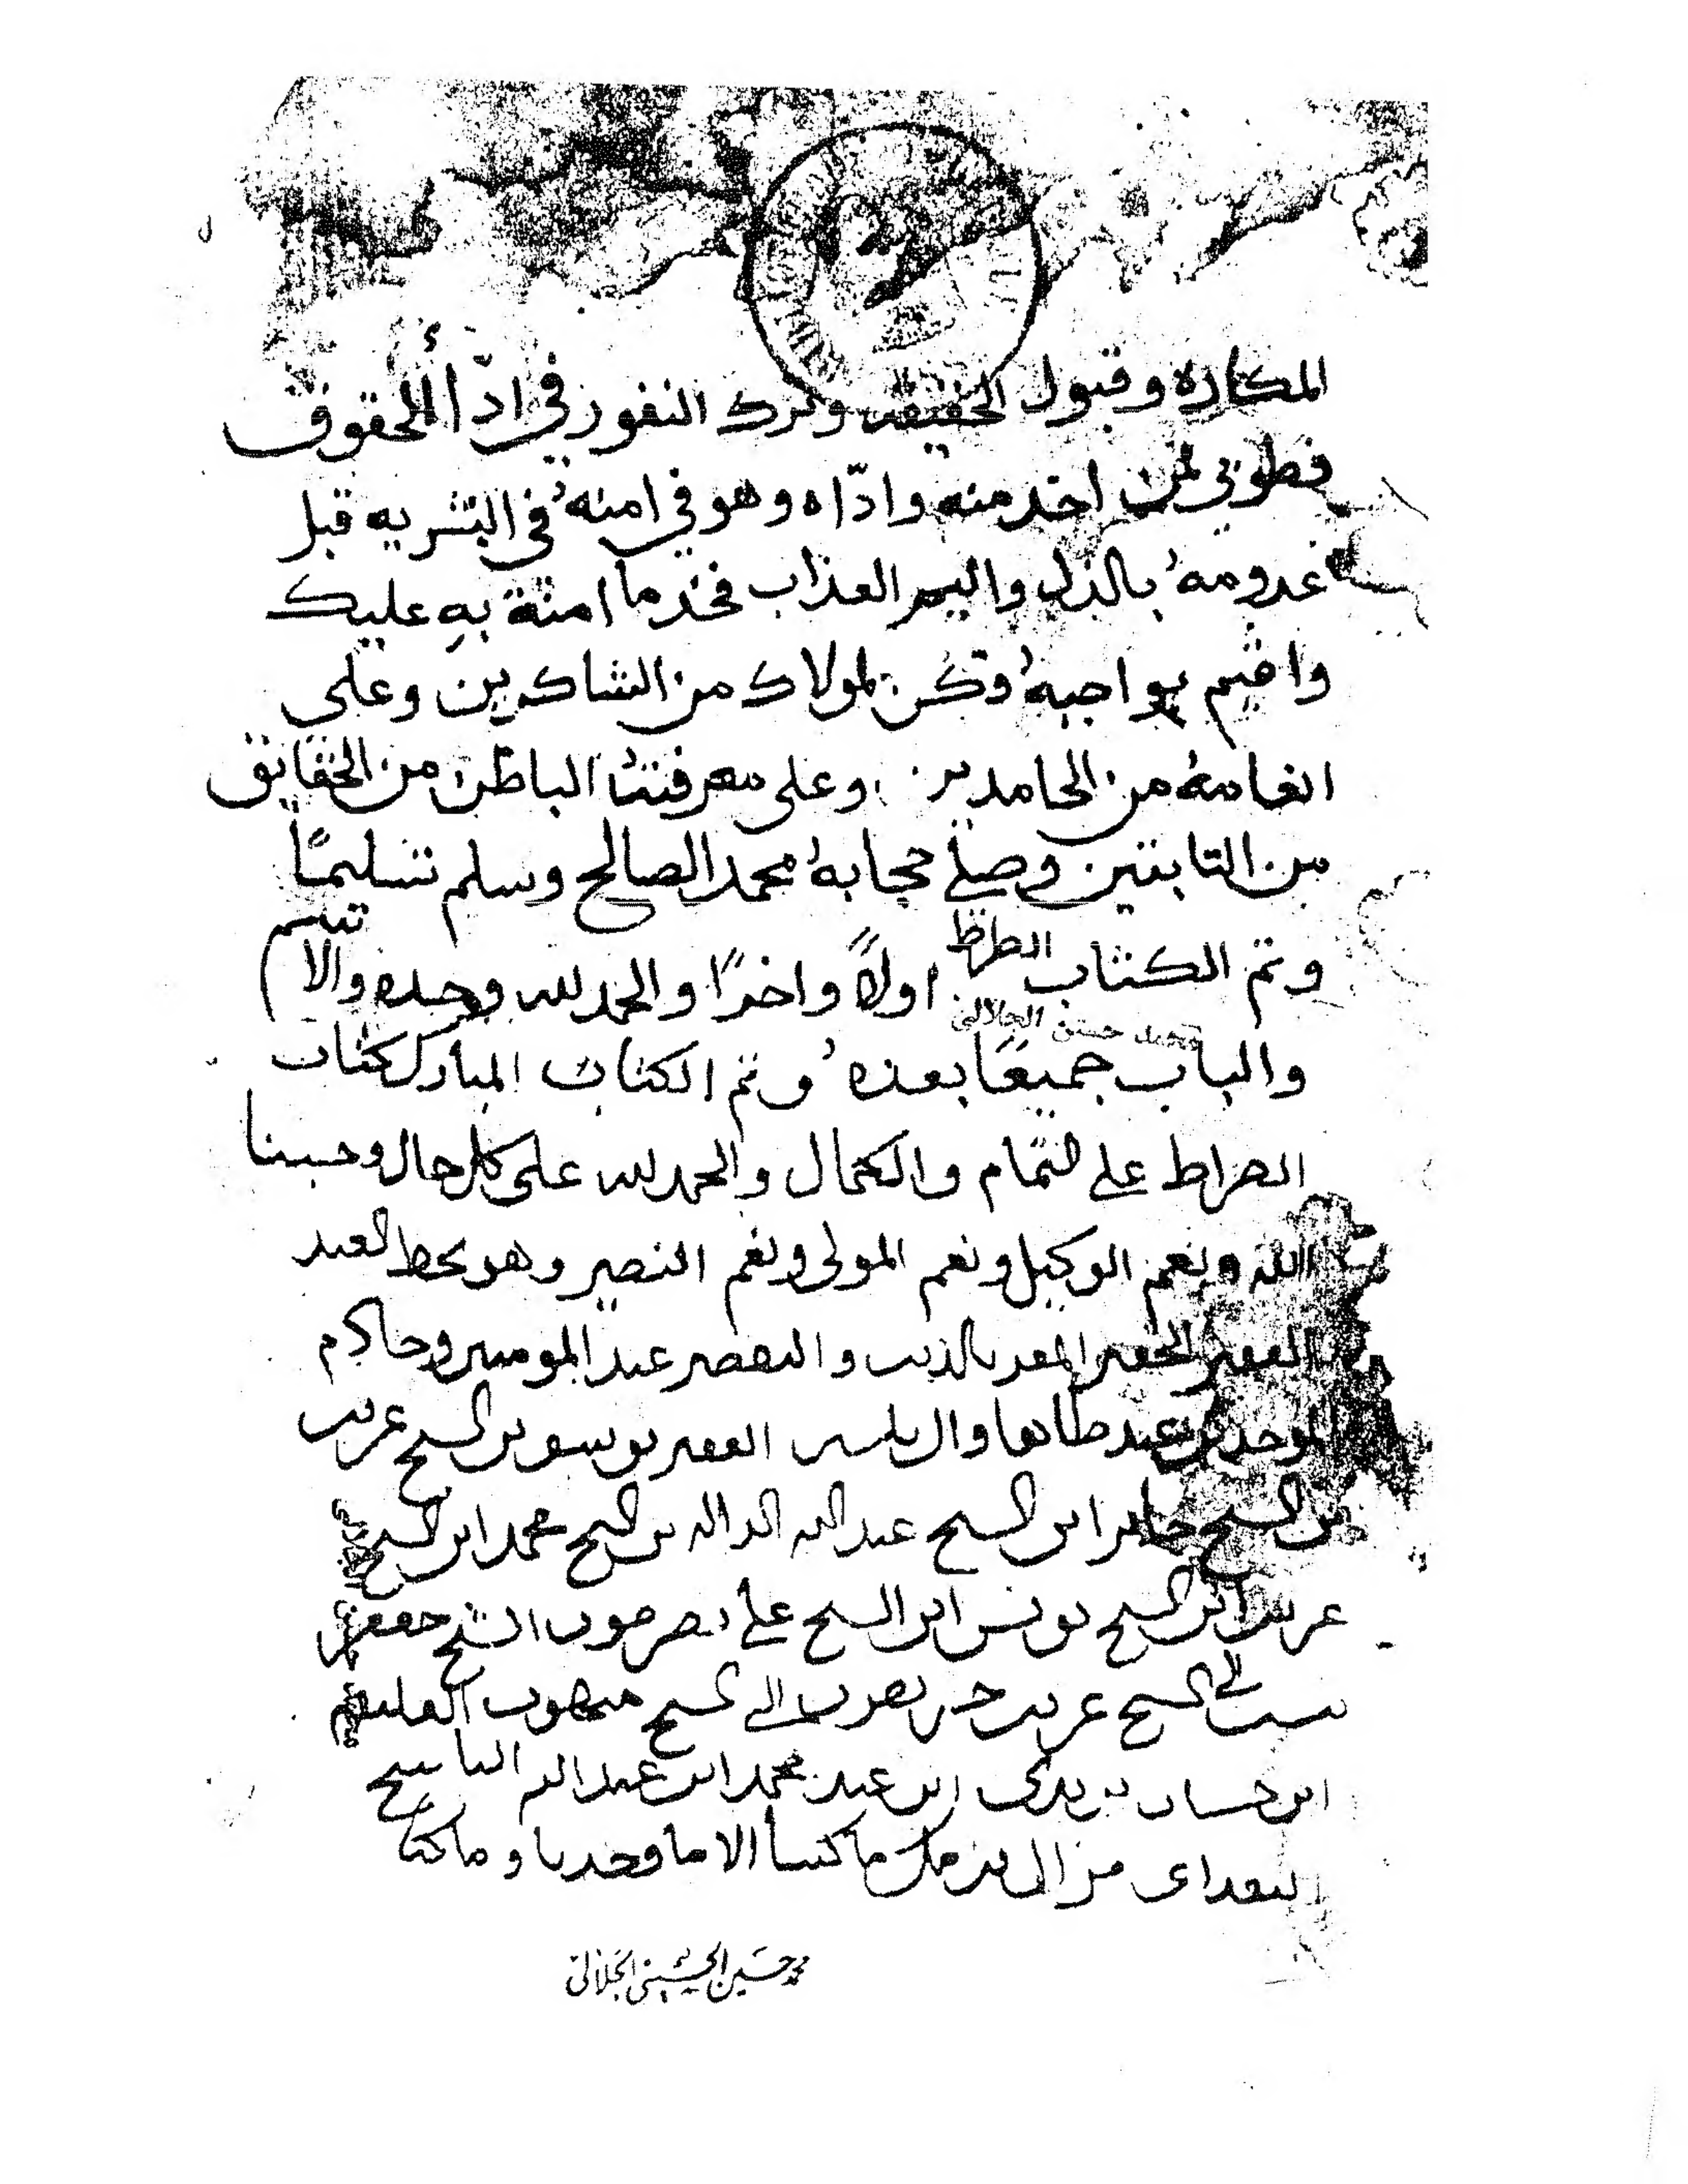 المكاره وقبول الحقيقه وترك النفور في ادّاء الحقوق
فطوبي لمن اخد منه وادّاه وهو في امنه في البشريه قبل
عدومه بالذل واليم العذاب فخذ ما امنة به عليك
واقيم بواجبه وكن لمولاك من الشاكرين وعلى
انعامه من الحامدين وعلى معرفته الباطن من الحقائق
من التابتين وصلي حجابه محمد الصالح وسلم تسليمًا
وتم الكتاب الطراط اولاً واخرًا والحمد لله وحده والا
محمد حسين الجلالي
والباب جميعًا بعده وتم الكتاب المبارك كتاب
الصراط علي التمام والكمال والحمد لله على كل حال وحسبنا
الله ونعم الوكيل ونعم المولى ونعم النصير وهو بخط العبد
الفقير الحقير المقر بالذنب والتقصير عبد المومنين وخادم
الموحدين عبد طاها وال ياسين الفقير يوسف بن الشيخ عريب
بن الشيخ جابر ابن الشيخ عبد الله بن الشيخ محمد ابن الشيخ
عريب ابن الشيخ يونس ابن الشيخ علي الشيخ جعفر
نسب الشيخ عريب الى الشيخ ميهوب
ابن حسان بن ابن عبد محمد ابن عبد الله الشيخ
البغدادي من ال ما كتبنا الا ما وجدنا وما كنا
محمد حسين الحسيني الجلالي